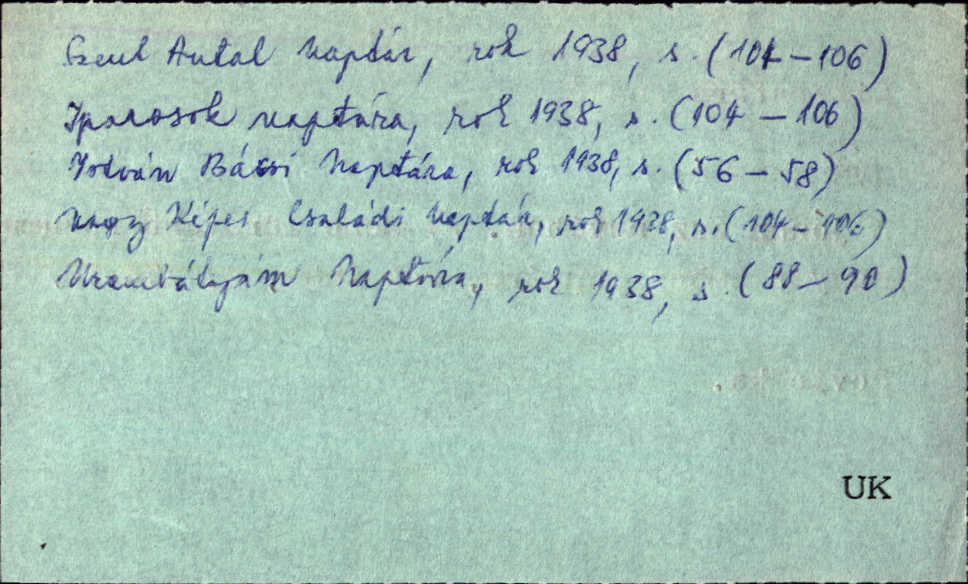 Szent Antal Naptár, rok 1938, s. (104-106)
Iparosok naptára, rok 1938, s. (104-106)
István Bácsi Naptára, rok 1938, s. (56-58)
Nagy Képes Családi Naptár, rok 1938, s. (104-106)
Urambátyám Naptára, rok 1938, s. (88-90)
UK